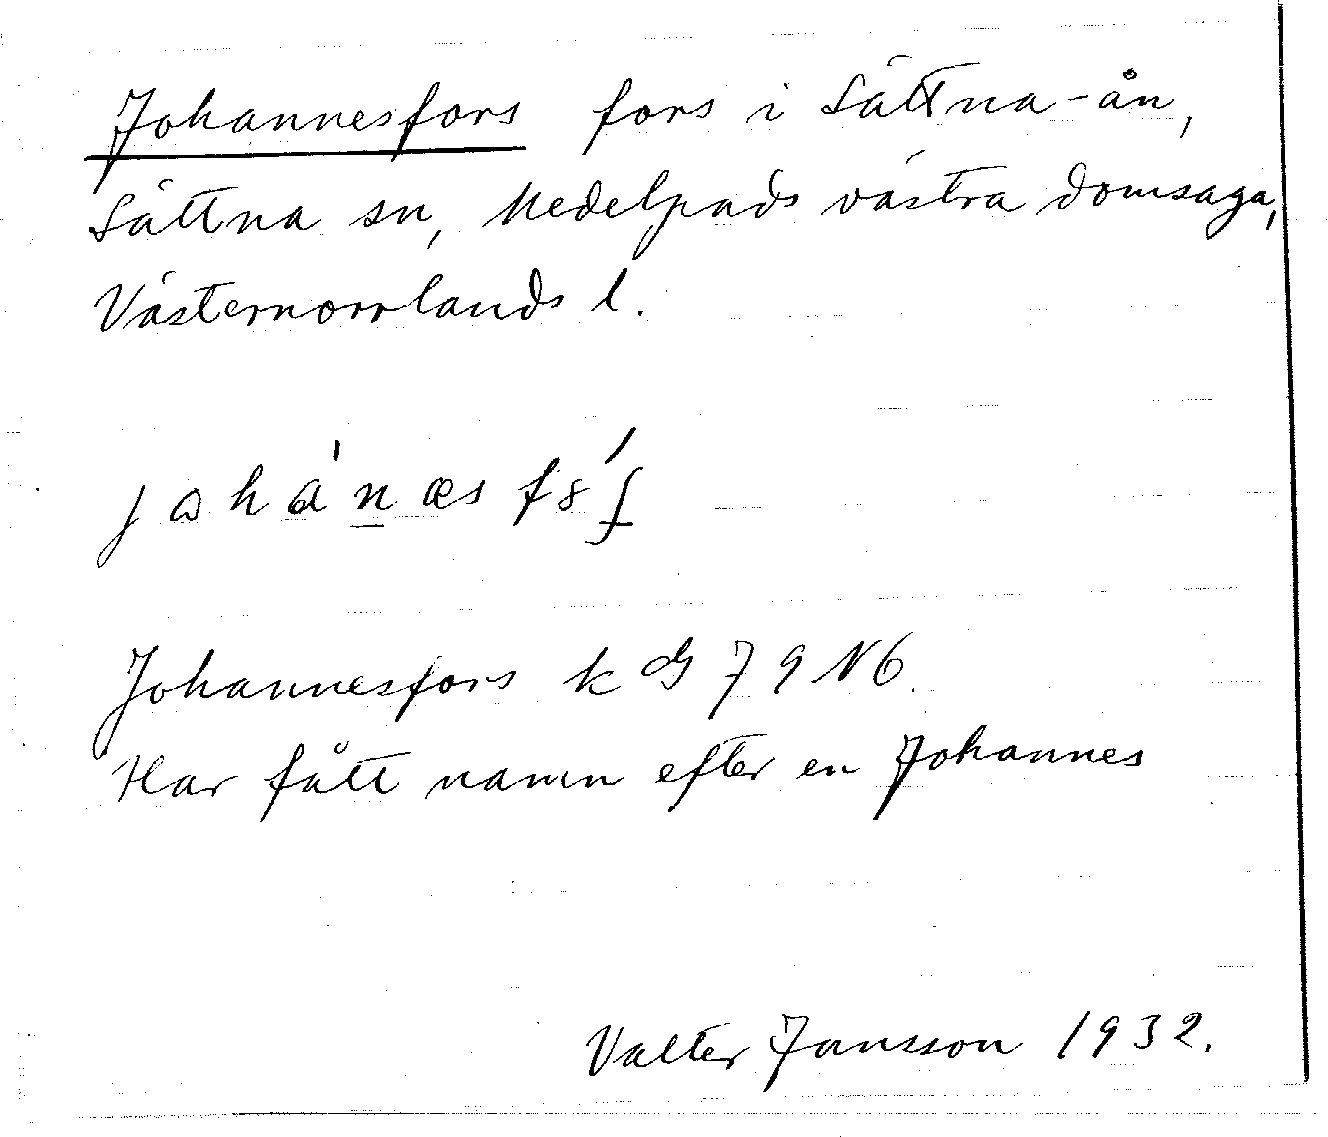 Johannesfors fors i Sättna-ån,
Sättna sn, Medelpads västra domsaga,
Västernorrlands l.
Johannesfors k 79 N6.
Har fått namn efter en Johannes
Valter Jansson 1932.